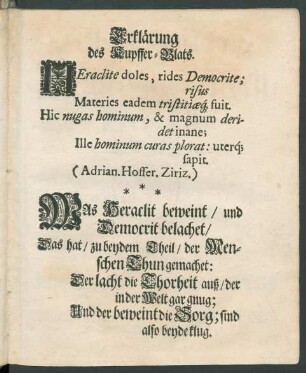 Erklärung
des Kupffer-Blats.
HEraclite doles, rides Democrite;
risus
Materies eadem tristitiæq́; fuit.
Hic nugas hominum, & magnum deri-
det inane;
Ille hominum curas plorat: uterq́;
sapit.
(Adrian. Hoffer. Ziriz.)
* * *
WAs Heraclit beweint / und
Democrit belachet /
Das hat / zu beydem Theil / der Men-
schen Thun gemachet:
Der lacht die Thorheit auß / der
in der Welt gar gnug;
Und der beweint die Sorg; sind
also beyde klug.